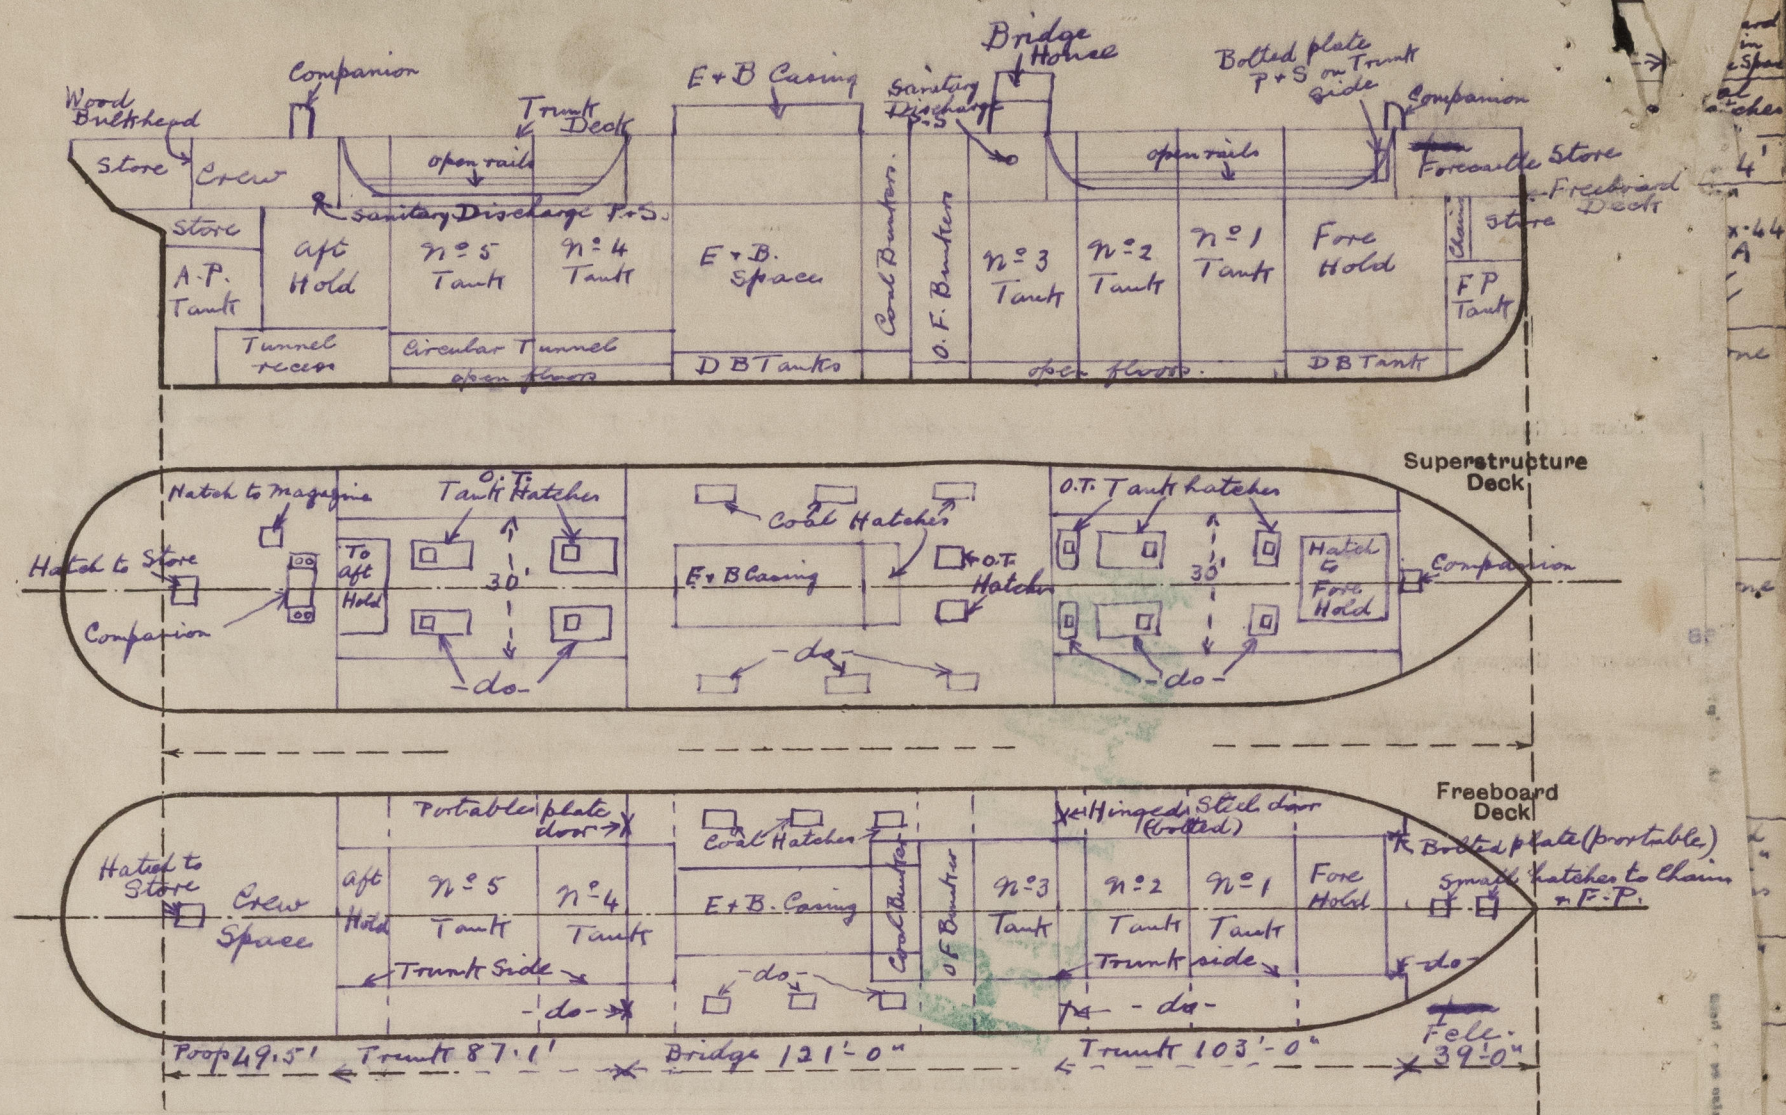 Bridge
House
Bolted plate
P + S on Trunk
side
Companion
E + B Casing
Sanitary
Discharge
S.S
Companion
Wood
Bulkhead
Trunk
Deck
Store
Crew
open rails
open rails
Forecastle Store
Freeboard
Deck
Sanitary Discharge P+S.
Store
Aft
Hold
No 5
Tank
No 4
Tank
E + B.
Space
Coal Bunkers.
O. F. Bunkers
No 3
Tank
No 2
Tank
No 1
Tank
Fore
Hold
Chain
Store
A.P.
Tank
F P
Tank
Tunnel
recess
Circular Tunnel
open floors
D B Tanks
open floors.
D B Tank
Superstructure
Deck
Hatch to Magazine
O.T.
Tank Hatches
Coal Hatches
O.T. Tank hatches
Hatch to Store
To
Aft
Hold
30'
E + B Casing
O.T.
Hatches
30'
Hatch
to
Fore
Hold
Companion
Companion
-do-
-do-
-do-
Freeboard
Deck
Portable plate
door
Coal Hatches
Hinged Steel door
(bolted)
Bolted plate (portable)
Small hatches to Chain
+ F.P.
Hatch to
Store
Crew
Space
Aft
Hold
No 5
Tank
No 4
Tank
E + B. Casing
Coal Bunker
O F Bunker
No 3
Tank
No 2
Tank
No 1
Tank
Fore
Hold
Trunk Side
-do-
Trunk side
-do-
-do-
-do-
Poop 49.5'
Trunk 87.1'
Bridge 121'-0"
Trunk 103'-0"
Fcle.
39'-0"